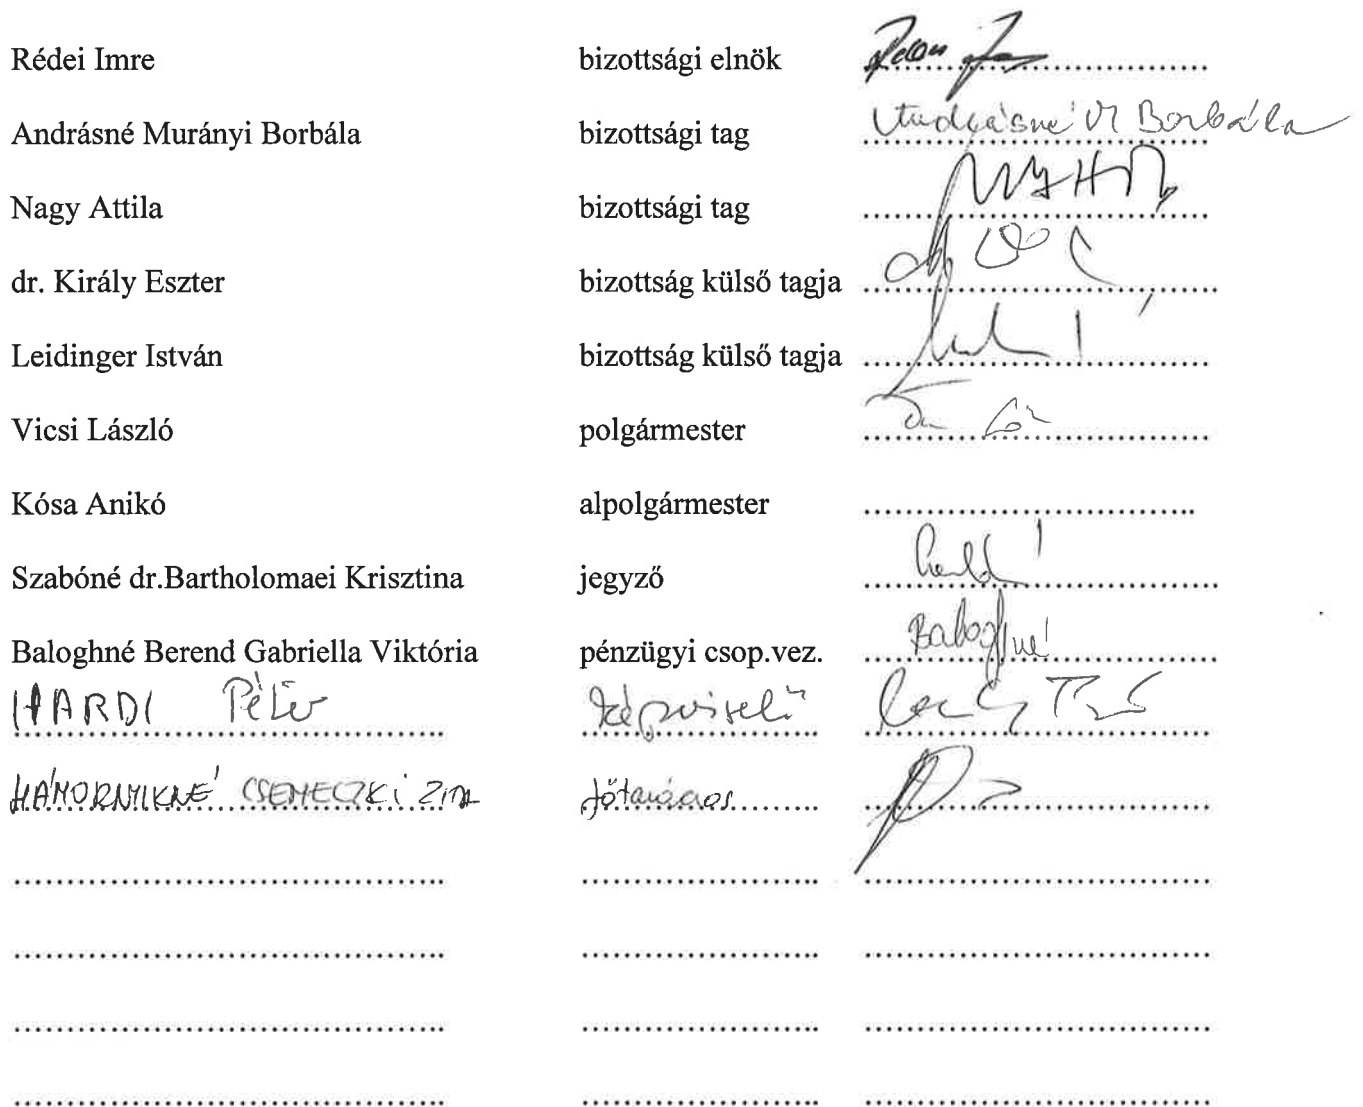 Rédei Imre bizottsági elnök
Andrásné Murányi Borbála bizottsági tag Andrásné M Borbála
Nagy Attila bizottsági tag
dr. Király Eszter bizottság külső tagja
Leidinger István bizottság külső tagja
Vicsi László polgármester
Kósa Anikó alpolgármester
Szabóné dr.Bartholomaei Krisztina jegyző
Baloghné Berend Gabriella Viktória pénzügyi csop.vez. Baloghné
HARDI Péter képviselő
HÁMORNYIKNÉ CSEMECZKI ZITA főtanácsos